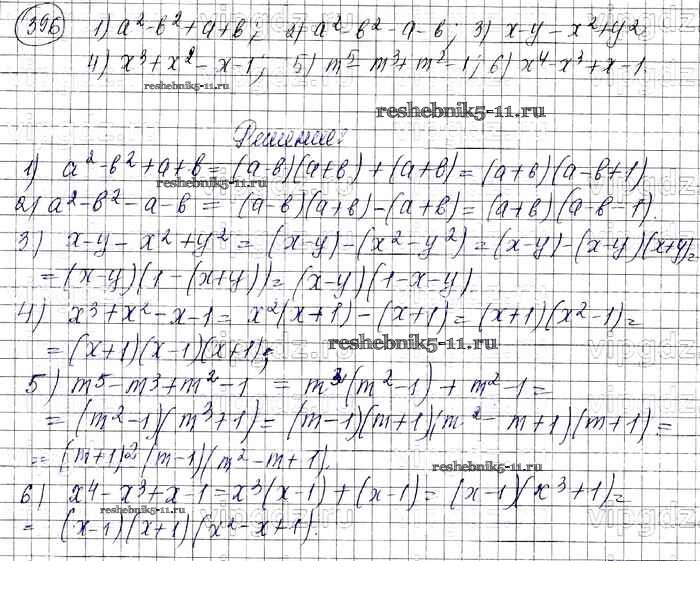 396 1) a² - b² + a + b; 2) a² - b² - a - b; 3) x - y - x² + y²
4) x³ + x² - x - 1; 5) m⁵ - m³ + m² - 1; 6) x⁴ - x³ + x - 1.
reshebnik5-11.ru
reshebnik5-11.ru
Решение:
1) a² - b² + a + b = (a - b)(a + b) + (a + b) = (a + b)(a - b + 1)
reshebnik5-11.ru
2) a² - b² - a - b = (a - b)(a + b) - (a + b) = (a + b)(a - b - 1).
3) x - y - x² + y² = (x - y) - (x² - y²) = (x - y) - (x - y)(x + y) =
= (x - y)(1 - (x + y)) = (x - y)(1 - x - y).
4) x³ + x² - x - 1 = x²(x + 1) - (x + 1) = (x + 1)(x² - 1) =
= (x + 1)(x - 1)(x + 1);
reshebnik5-11.ru
5) m⁵ - m³ + m² - 1 = m³(m² - 1) + m² - 1 =
= (m² - 1)(m³ + 1) = (m - 1)(m + 1)(m² - m + 1)(m + 1) =
= (m + 1)² (m - 1)(m² - m + 1).
reshebnik5-11.ru
6) x⁴ - x³ + x - 1 = x³(x - 1) + (x - 1) = (x - 1)(x³ + 1) =
reshebnik5-11.ru
= (x - 1)(x + 1)(x² - x + 1).